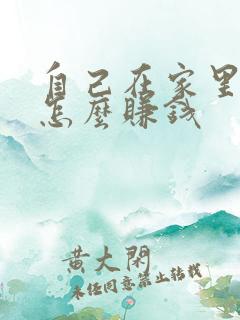 自己在家里
怎麼賺錢
黄大閑
未经同意禁止转载